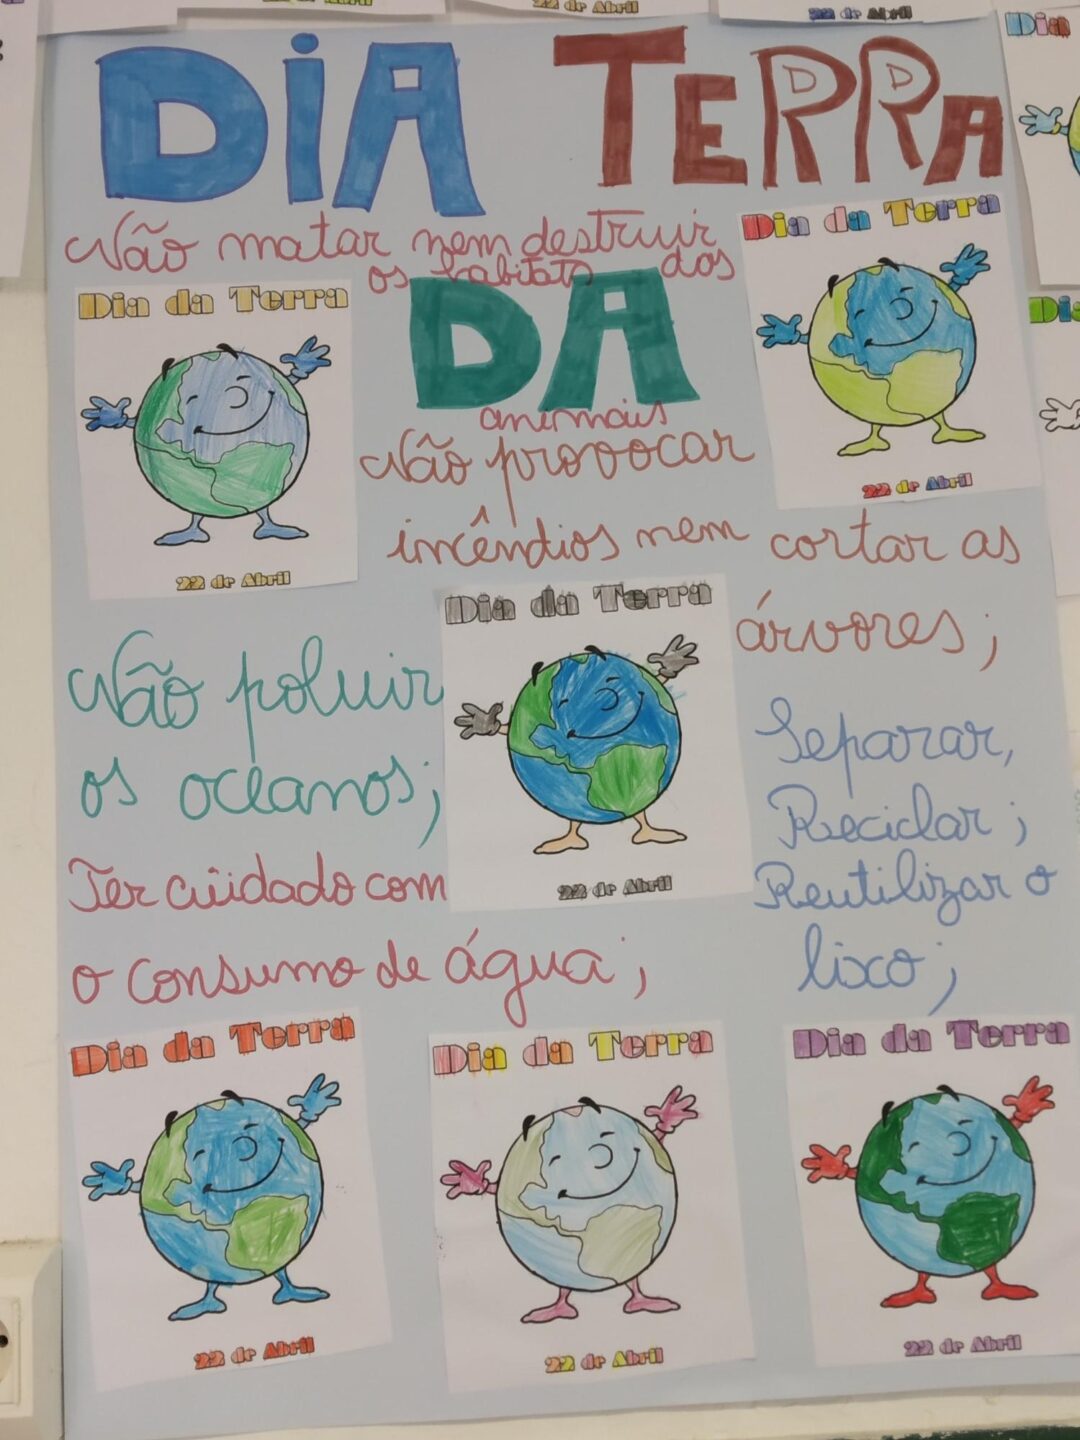 22 de Abril
22 de Abril
DiA TERRA
Dia
Não matar nem destruir
os habitats dos
DA
animais
Dia da Terra
22 de Abril
Dia da Terra
22 de Abril
Não provocar
incêndios nem cortar as
árvores;
Dia da Terra
22 de Abril
Não poluir
os oceanos;
Separar,
Reciclar;
Reutilizar o
lixo;
Ter cuidado com
o consumo de água;
Dia da Terra
22 de Abril
Dia da Terra
22 de Abril
Dia da Terra
22 de Abril